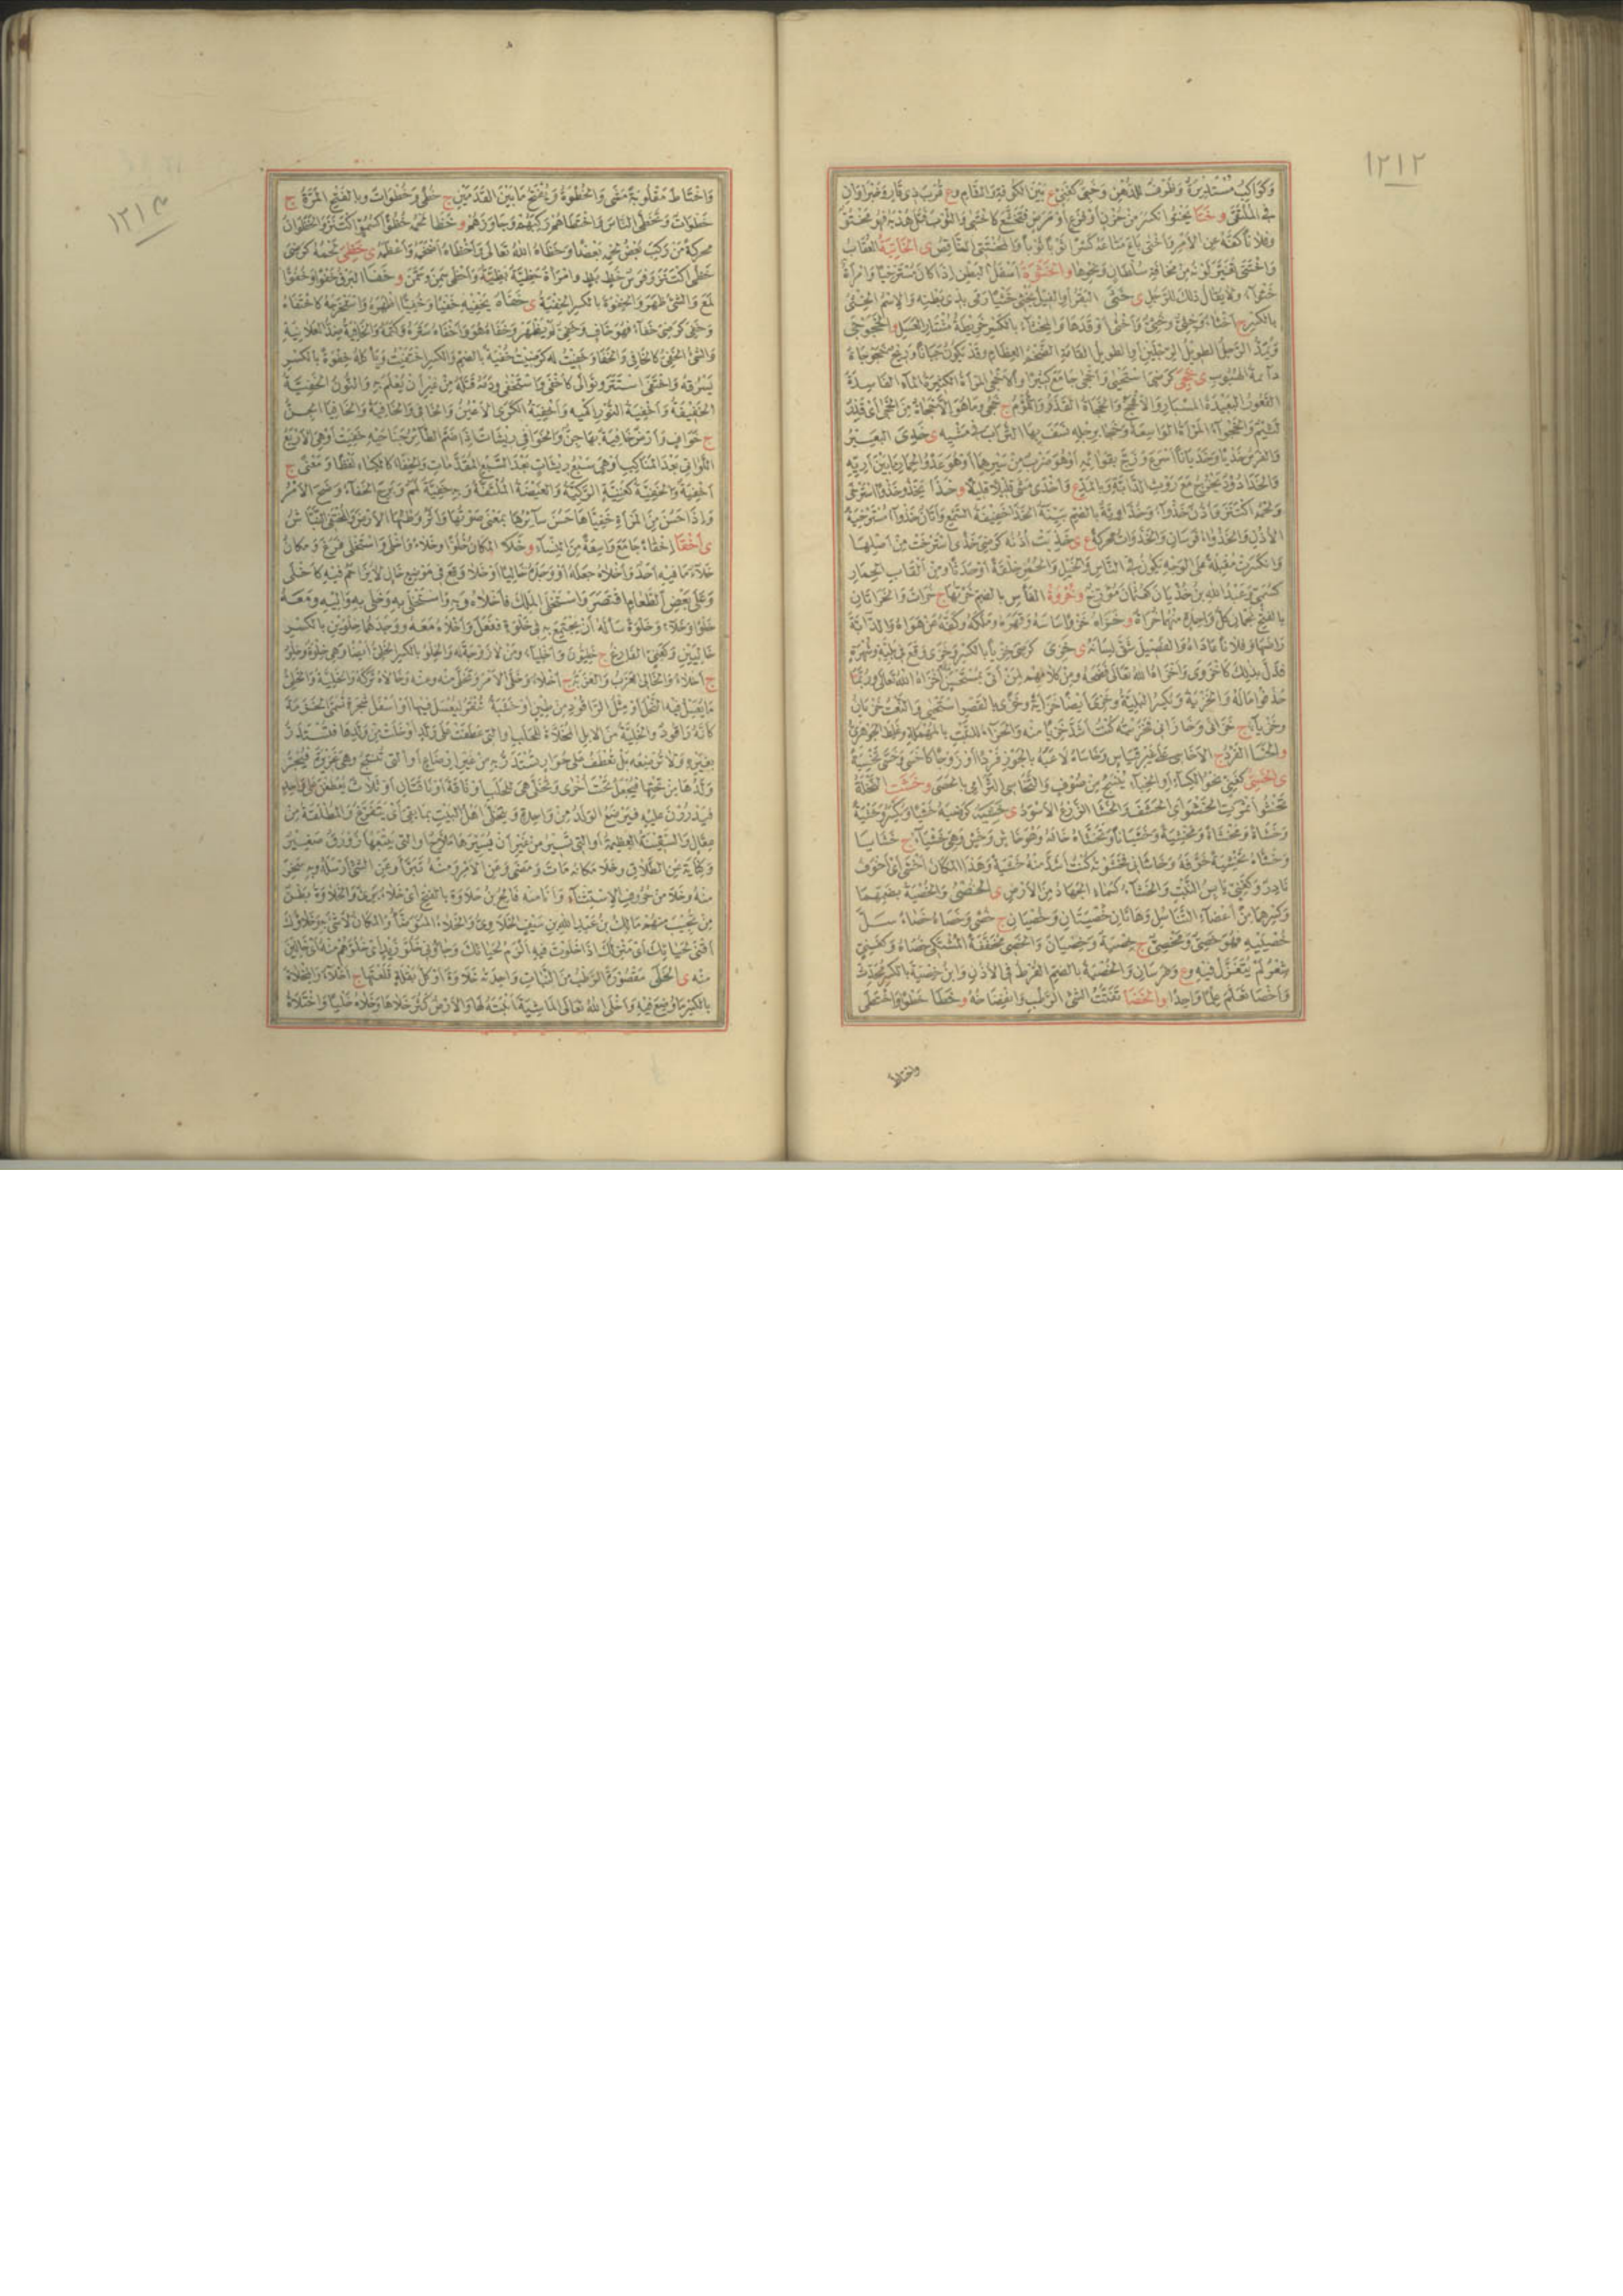 ١٢١٢
وكواكب مستديرة وظرف للدهن وخبى كغنى ع بين الكوفة والشام وع قرب ذى قار وخبراوان
فى الملتقى و ختا يختو انكسر من حزن او فزع او مرض فتخشع كاختتى والثوب فتل هدبه فهو مختو
وفلانا كفه عن الامر واختى باع متاعه كسرا ثوبا ثوبا والمختتى الناقص ى الخاتية العقاب
واختتى تغير لونه من مخافة سلطان ونحوها و الخثوة اسفل البطن اذا كان مسترخيا وامراة
خثوآء ولا يقال ذلك للرجل ى خثى البقر او الفيل يخثى خثيا رمى بذى بطنه والاسم الخثى
بالكسر ج اخثاء وخثى وخثى واخثى اوقدها والمخثآء بالكسر خريطة مشتار العسل و الخجوجى
ويمد الرجل الطويل الرجلين او الطويل القامة الضخم العظام وقد يكون جبانا وريح خجوجاة
دآئمة الهبوب ى خجى كرضى استحيى واخجى جامع كثيرا والاخجى المراة الكثيرة المآء الفاسدة
القعور البعيدة المسبار والافحج والخجاة القذر واللؤم ج خجى وما هو الا خجاة من الخجى اى قذر
لئيم والخجوآء المراة الواسعة وخجا برجله نسف بها التراب فى مشيه ى خدى البعير
والفرس خديا وخديانا اسرع وزج بقوائمه او هو ضرب من سيرهما او هو عدو الحمار ما بين آريه
والخدا دود يخرج مع روث الدابة وبالمد ع واخدى مشى قليلا قليلا و خذا يخذو خذوا استرخى
ولحمه اكتنز واذن خذوآء وخذاوية بالضم بينة الخذا خفيفة السمع واتان خذوآء مسترخية
الاذن والخذواء فرسان والخذوات محركة ع ى خذيت اذنه كرضى خذى استرخت من اصلها
وانكسرت مقبلة على الوجه يكون فى الناس والخيل والحمر خلقة او حدثا ومن القاب الحمار
كسمى وعبد الله بن خذيان كعثمان مؤرخ و خروة الفأس بالضم خرتها ج خرات والخراتان
بالفتح نجمان كل واحدة منهما خراة و خزاه خزوا ساسه وقهره وملكه وكفه عن هواه والدآبة
راضها وفلانا عاداه والفصيل شق لسانه ى خزى كرضى خزيا بالكسر وخزى وقع فى بلية وشهرة
فذل بذلك كاخزوى واخزاه الله تعالى فضحه ومن كلامهم لمن اتى بمستحسن اخزاه الله تعالى وربما
حذفوا ماله والخزية وبكسر البلية وخزى ايضا خزاية وخزى بالقصر استحيى والنعت خزيان
وخزيا ج خزايا وخازانى فخزيته كنت اشد خزيا منه والخزاء للنبت بالمهملة وغلط الجوهرى
و الخسا الفرد ج الاخاسى على غير قياس وخاساه لاعبه بالجوز فردا او زوجا كاخسى وخسى تخسية
ى الخسى كغنى نحو الكساء او الخباء ينسج من صوف والتخاسى الترامى بالحصى و خشت النخلة
تخشو اثمرت الخشو اى الحشف والخشا الزرع الاسود ى خشيه كرضيه خشيا ويكسر وخشية
وخشاة ومخشاة ومخشية وخشيانا وتخشاه خافه وهو خاش وخش وهى خشيآء ج خشايا
وخشاه تخشية خوفه وخاشانى فخشيته كنت اشد منه خشية وهذا المكان اخشى اى اخوف
نادر وكغنى يابس النبت والخشاء كسماء الجهاد من الارض ى الخصى والخصية بضمهما
وكسرهما من اعضاء التناسل وهاتان خصيتان وخصيان ج خصى وخصاه خصاء سل
خصييه فهو خصى ومخصى ج خصية وخصيان والخصى مخففة المشتكى خصاه وكغنى
شعر لم يتغزل فيه وع وفرسان والخصية بالضم القرط فى الاذن وابن خصية بالكسر محدث
واخصى تعلم علما واحدا و الخضا تفتت الشئ الرطب وانفضاخه و خطا خطوا واختطى
واختاط
١٢١٣
واختاط مقلوبة مشى والخطوة ويفتح ما بين القدمين ج خطى وخطوات وبالفتح المرة ج
خطوات وتخطى الناس واختطاهم ركبهم وجاوزهم و خظا لحمه خظوا كسمو اكتنز والخظوان
محركة من ركب بعض لحمه بعضا وخظاه الله تعالى واخظاه اضخمه واعظمه ى خظى لحمه كرضى
خظى اكتنز وفرس خظ بظ وامراة خظية بظية واخظى سمن وسمن و خفا البرق خفوا وخفوا
لمع والشئ ظهر والخفوة بالكسر الخفية ى خفاه يخفيه خفيا وخفيا اظهره واستخرجه كاختفاه
وخفى كرضى خفآء فهو خاف وخفى لم يظهر وخفاه هو واخفاه ستره وكتمه والخافية ضد العلانية
والشئ الخفى كالخافى والخفا وخفيت له كرضيت خفية بالضم والكسر اختفيت ويأكله خفوة بالكسر
يسرقه واختفى استتر وتوارى كاخفى واستخفى ودمه قتله من غير ان يعلم به والنون الخفية
الخفيفة واخفية النور اكمته واخفية الكرى الاعين والخافى والخافية والخافيآء الجن
ج خواف وارض خافية بها جن والخوافى ريشات اذا ضم الطآئر جناحيه خفيت او هى الاربع
اللواتى بعد المناكب او هى سبع ريشات بعد السبع المقدمات والخفا كالكساء لفظا ومعنى ج
اخفية والخفية كغنية الركية والغيضة الملتفة وبه خفية لمم وبرح الخفآء وضح الامر
واذا حسن من المراة خفياها حسن سآئرها يعنى صوتها واثر وطئها الارض والمختفى النباش
ى اخقا اخقاء جامع واسعة من النسآء و خلا المكان خلوا وخلاء واخلى واستخلى فرغ ومكان
خلآء ما فيه احد واخلاه جعله او وجده خاليا وخلا وقع فى موضع خال لا يزاحم فيه كاخلى
وعلى بعض الطعام اقتصر واستخلى الملك فاخلاه وبه واستخلى به وخلى به واليه ومعه
خلوا وخلاء وخلوة سأله ان يجتمع به فى خلوة ففعل واخلاه معه ووجدهما خلوين بالكسر
خاليين وكغنى الفارغ ج خليون واخلياء ومن لا زوجة له والخلو بالكسر الخلى ايضا وهى خلوة وخلو
ج اخلاء والخالى العزب والعزبة ج اخلاء وخلى الامر وتخلى منه وعنه وخالاه تركه والخلية والخلى
ما يعسل فيه النحل او مثل الراقود من طين او خشبة تنقر ليعسل فيها او اسفل شجرة تسمى الخزمة
كانه راقود والخلية من الابل المخلاة للحلب او التى عطفت على ولد او خلت من ولدها فتستدر
بغيره ولا ترضعه بل تعطف على حوار تستدر به من غير ارضاع او التى تنتج وهى غزيرة فيجر
ولدها من تحتها فيجعل تحت اخرى وتخلى هى للحلب او ناقة او ناقتان او ثلاث يعطفن على واحد
فيدررن عليه فيرضع الولد من واحدة ويتخلى اهل البيت بما بقى اى يتفرغ والمطلقة من
عقال والسفينة العظيمة او التى تسير من غير ان يسيرها ملاح او التى يتبعها زورق صغير
وكناية عن الطلاق وخلا مكانه مات ومضى وعن الامر ومنه تبرأ وعن الشئ ارسله وبه سخر
منه وخلا من حروف الاستثناء وانا منه فالج بن خلاوة بالفتح اى خلاء برئ والخلاوة بطن
من تجيب منهم مالك بن عبد الله بن سيف الخلاوى والخلاء المتوضأ والمكان لا شئ به وخلاؤك
اقنى لحيائك اى منزلك اذا خلوت فيه الزم لحيائك وجاؤنى خلو زيد اى خلوهم منه اى خالين
منه ى الخلى مقصورة الرطب من النبات واحدته خلاة او كل بقلة قلعتها ج اخلاء والمخلاة
بالكسر ما وضع فيه واخلى الله تعالى الماشية انبته لها والارض كثر خلاها وخلاه خليا واختلاه